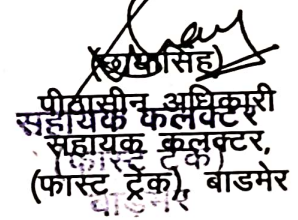 पीठासीन अधिकारी
सहायक कलक्टर
सहायक कलक्टर,
(फास्ट ट्रेक)
(फास्ट ट्रेक), बाडमेर
बाडमेर